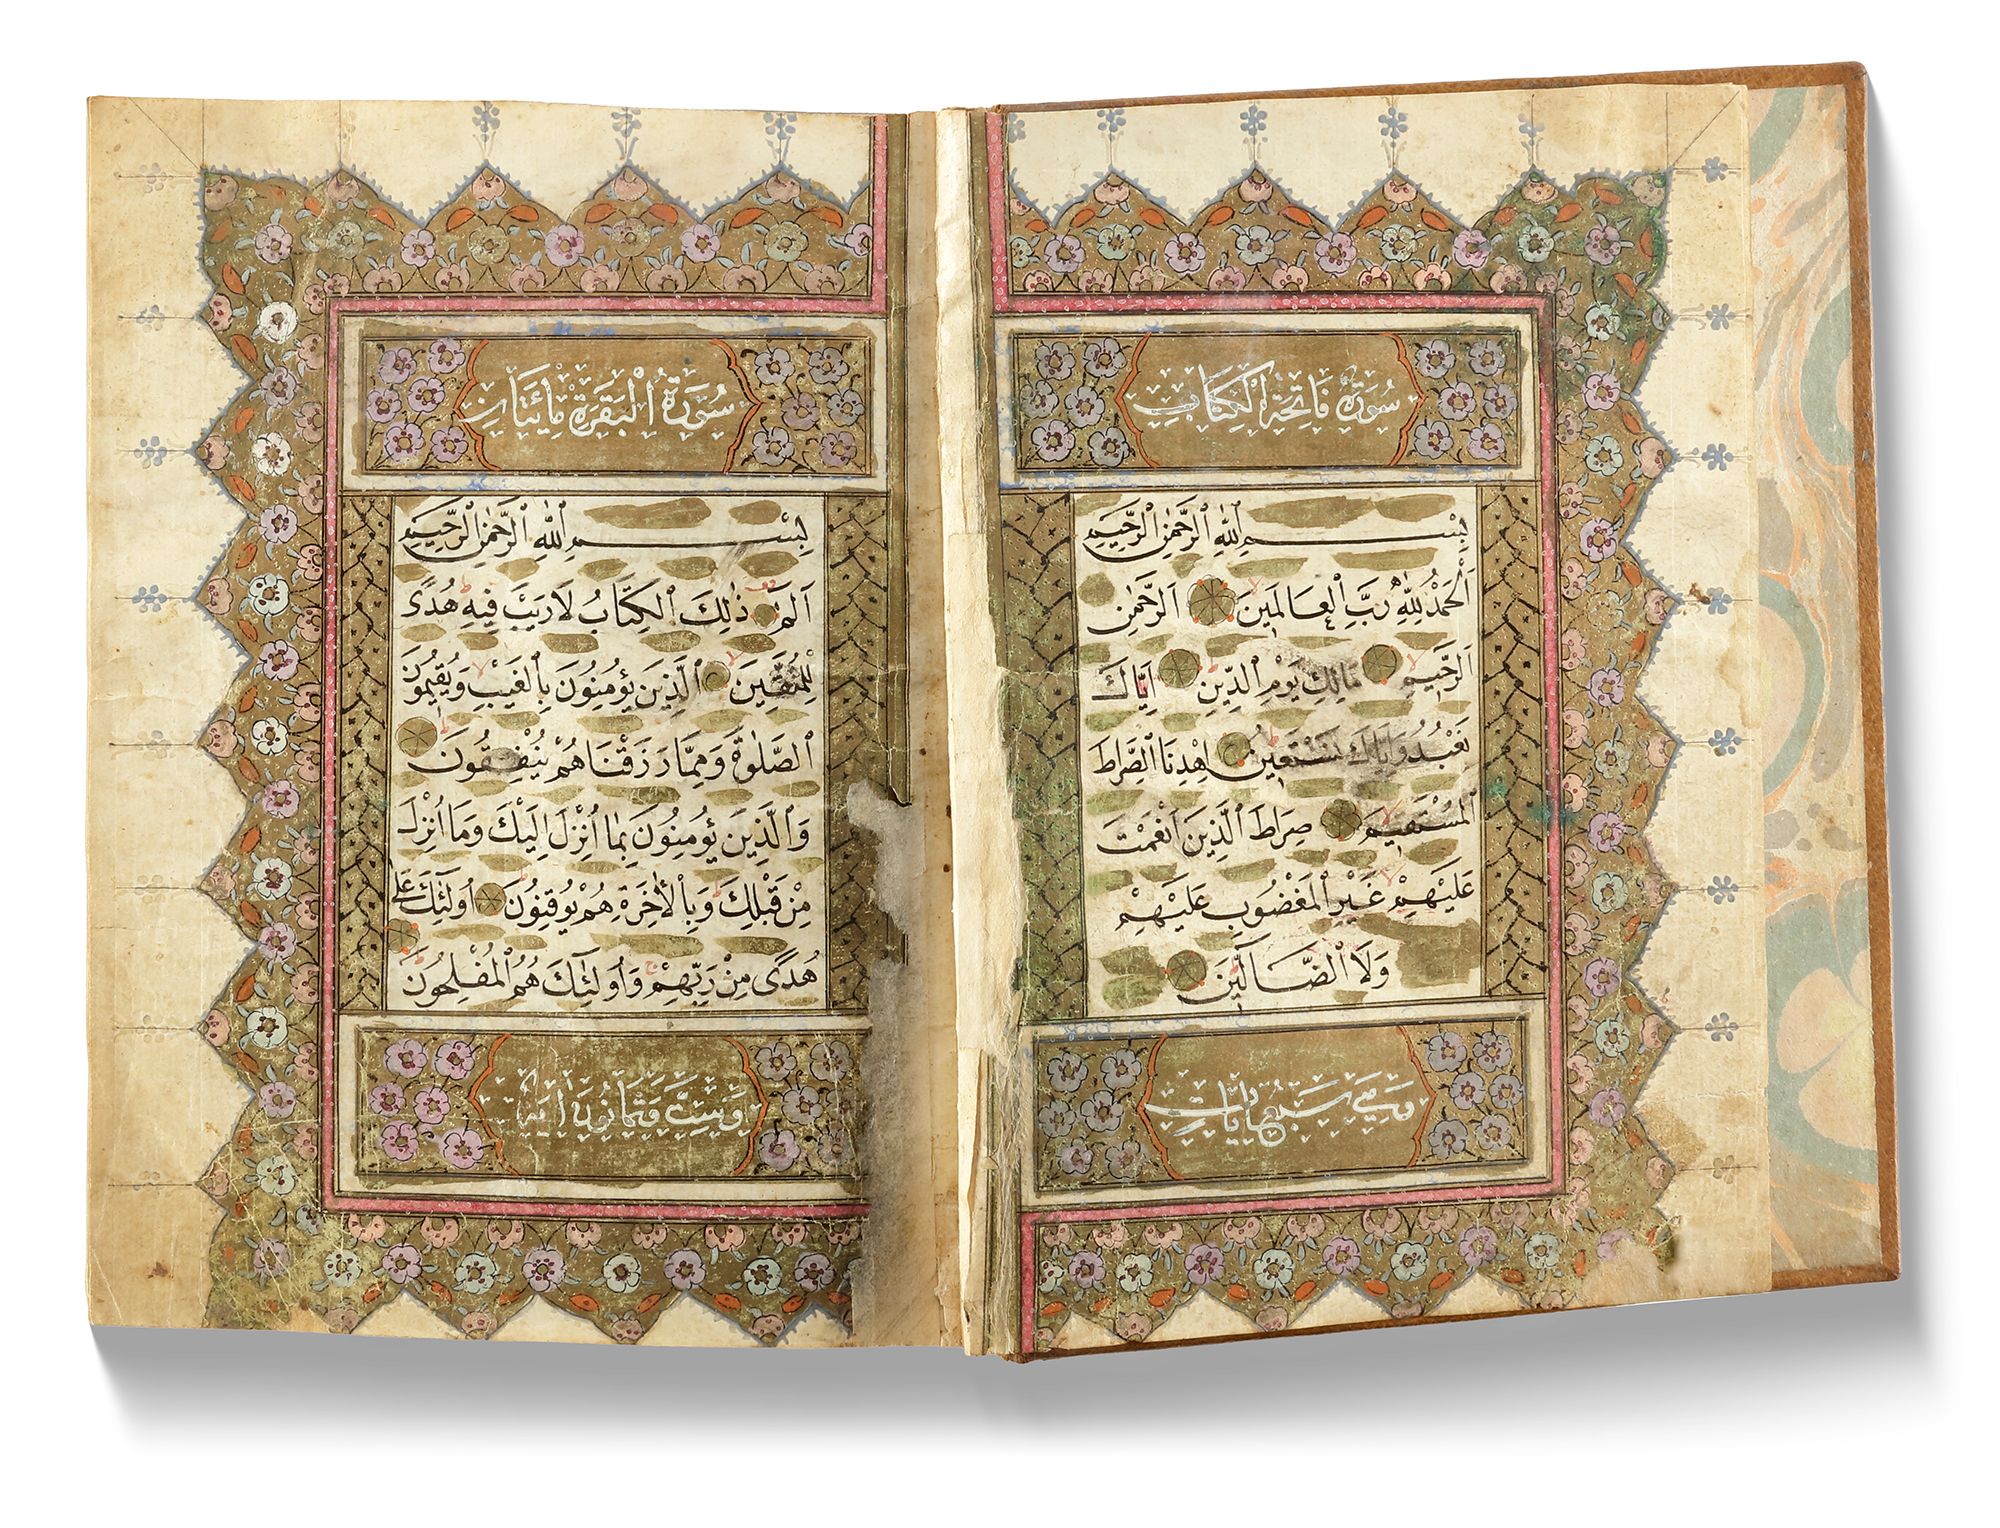 سُورَةُ فَاتِحَةِ الْكِتَابِ
بِسْمِ اللهِ الرَّحْمٰنِ الرَّحِيمِ
اَلْحَمْدُ لِلّٰهِ رَبِّ الْعَالَمِينَ الرَّحْمٰنِ
الرَّحِيمِ مَالِكِ يَوْمِ الدِّينِ اِيَّاكَ
نَعْبُدُ وَاِيَّاكَ نَسْتَعِينُ اِهْدِنَا الصِّرَاطَ
الْمُسْتَقِيمَ صِرَاطَ الَّذِينَ اَنْعَمْتَ
عَلَيْهِمْ غَيْرِ الْمَغْضُوبِ عَلَيْهِمْ
وَلَا الضَّالِّينَ
وَهِيَ سَبْعُ اٰيَاتٍ
سُورَةُ الْبَقَرَةِ مِائَتَانِ
بِسْمِ اللهِ الرَّحْمٰنِ الرَّحِيمِ
الٓمٓ ذٰلِكَ الْكِتَابُ لَا رَيْبَ فِيهِ هُدًى
لِلْمُتَّقِينَ الَّذِينَ يُؤْمِنُونَ بِالْغَيْبِ وَيُقِيمُونَ
الصَّلٰوةَ وَمِمَّا رَزَقْنَاهُمْ يُنْفِقُونَ
وَالَّذِينَ يُؤْمِنُونَ بِمَا اُنْزِلَ اِلَيْكَ وَمَا اُنْزِلَ
مِنْ قَبْلِكَ وَبِالْاٰخِرَةِ هُمْ يُوقِنُونَ اُولٰئِكَ عَلٰى
هُدًى مِنْ رَبِّهِمْ وَاُولٰئِكَ هُمُ الْمُفْلِحُونَ
وَسِتٌّ وَثَمَانُونَ اٰيَةً